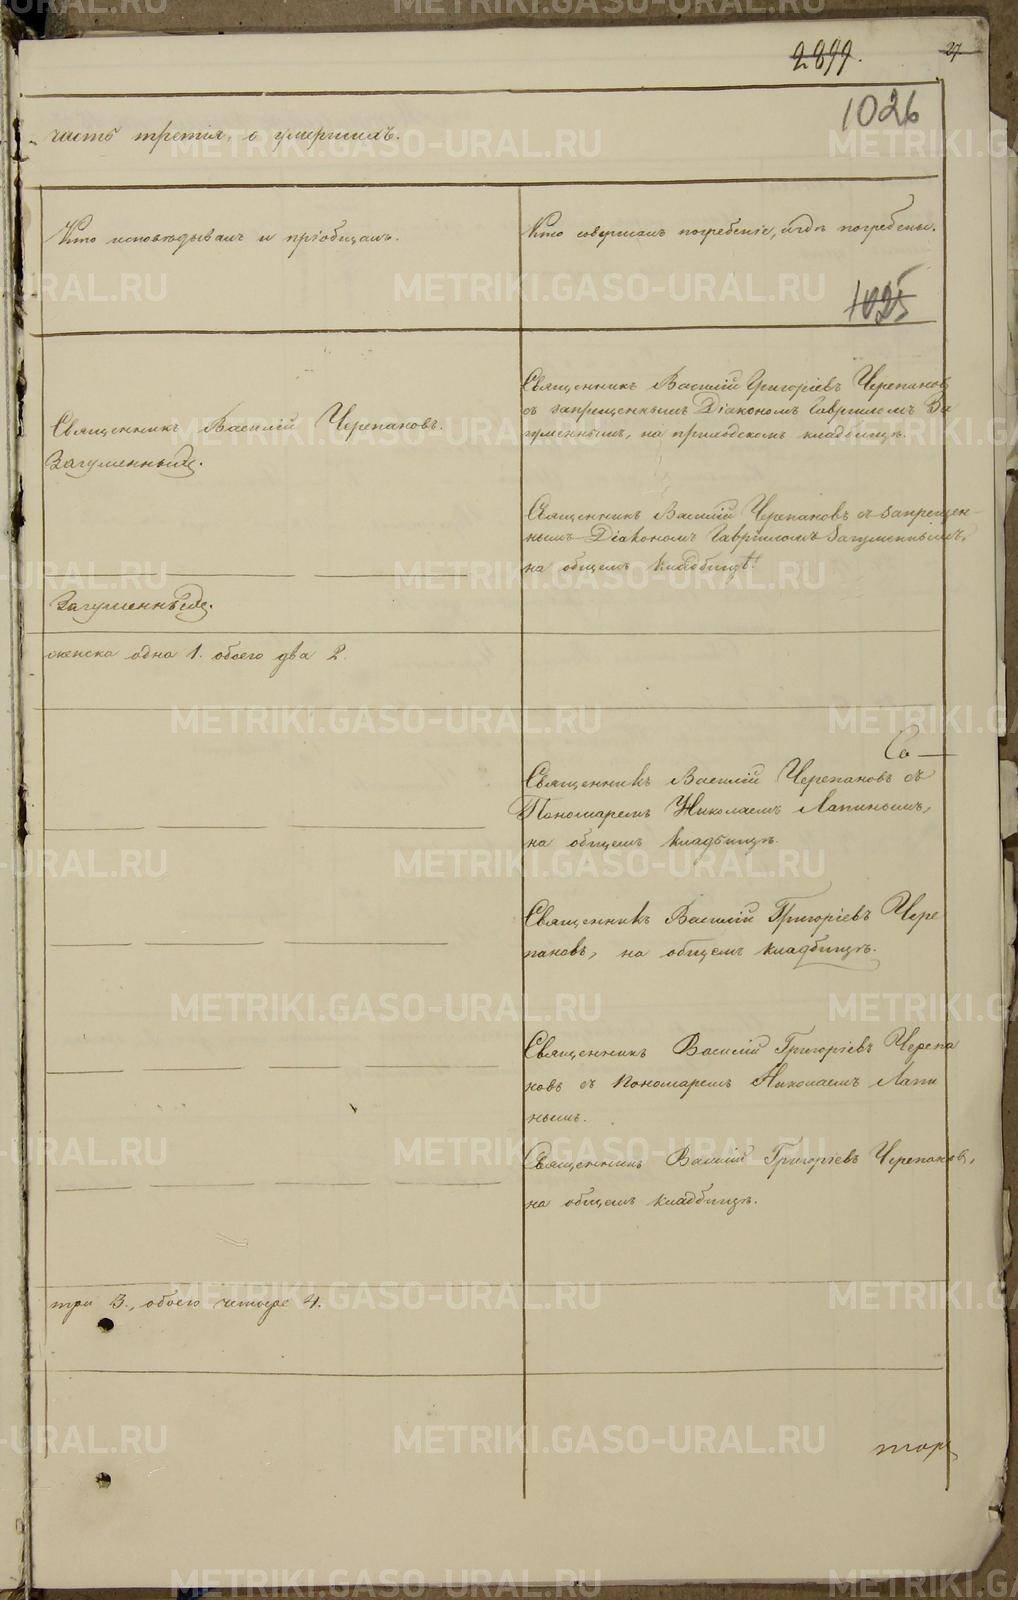 2899.
27.
1026
часть третія, о умершихъ.
Кто исповѣдывалъ и пріобщалъ.
Кто совершалъ погребеніе, и гдѣ погребены.
1025
Священникъ Василій Черепановъ.
Загуменныхъ.
Священникъ Василій Григоріевъ Черепановъ
съ запрещеннымъ Діакономъ Гавріиломъ За
гуменнымъ, на приходскомъ кладбищѣ.
Священникъ Василій Черепановъ съ запрещен-
нымъ Діакономъ Гавріиломъ Загуменнымъ,
на общемъ кладбищѣ.
Загуменныхъ.
женска одна 1. обоего два 2.
Со
Священникъ Василій Черепановъ съ
Пономаремъ Николаемъ Лапинымъ,
на общемъ кладбищѣ.
Священникъ Василій Григоріевъ Чере
пановъ, на общемъ кладбищѣ.
Священникъ Василій Григоріевъ Черепа
новъ съ Пономаремъ Николаемъ Лапи
нымъ.
Священникъ Василій Григоріевъ Черепановъ,
на общемъ кладбищѣ.
три 3., обоего четыре 4.
METRIKI.GASO-URAL.RU